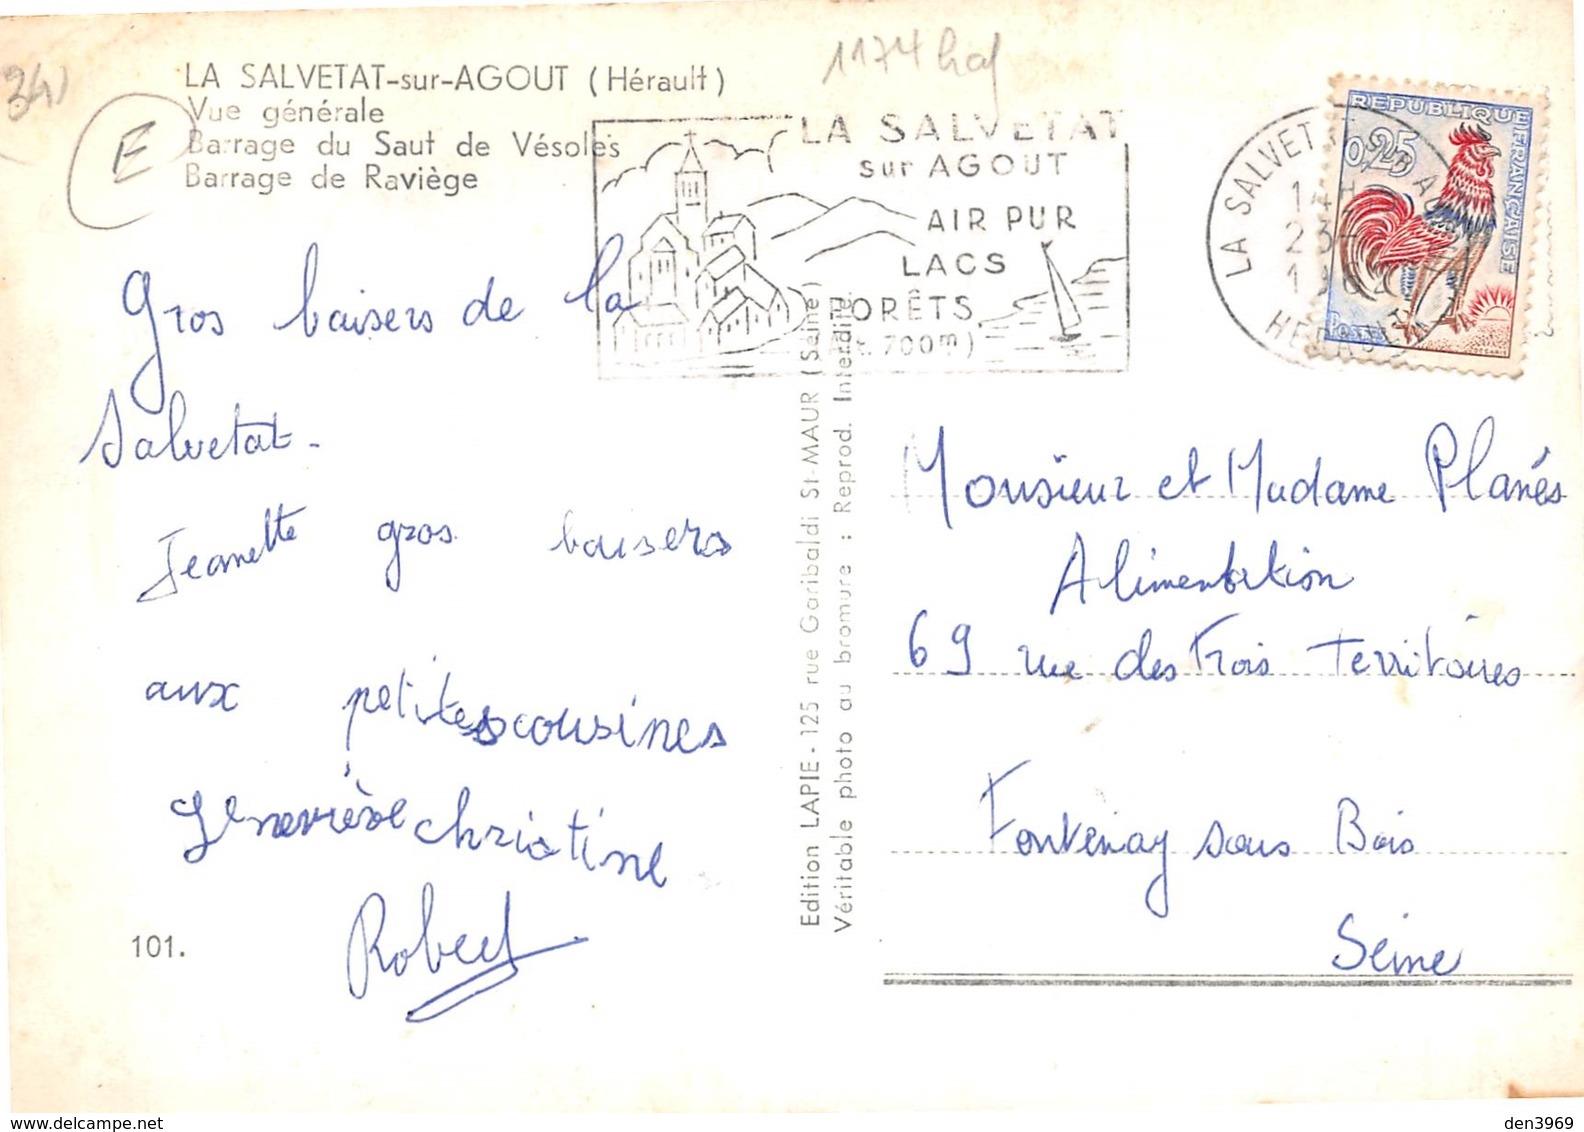 34)
E
1174
LA SALVETAT-sur-AGOUT (Hérault)
Vue générale
Barrage du Saut de Vésoles
Barrage de Raviège
LA SALVETAT
sur AGOUT
AIR PUR
LACS
FORÊTS
700m)
LA SALVET
14H
HERAULT
REPUBLIQUE FRANÇAISE
0,25
Postes
Gros baisers de la
Salvetat -
Jeanette gros baisers
aux petites cousines
Geneviève christine
Robert
101.
Edition LAPIE - 125 rue Garibaldi St-MAUR (Seine)
Véritable photo au bromure : Reprod. Interdite.
Monsieur et Madame Planés
Alimentation
69 rue des Trois Territoires
Fontenay sous Bois
Seine
delcampe.net
den3969